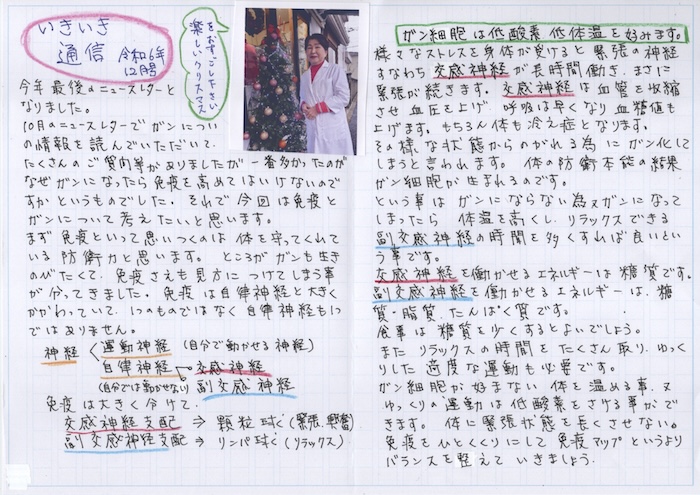 いきいき
通信 令和6年
12月号
をむかえてください
楽しいクリスマス
今年最後のニュースレターと
なりました。
10月のニュースレターでガンについ
の情報を読んでいただいて、
たくさんのご質問等がありましたが一番多かったのが
なぜガンになったら免疫を高めてはいけないので
すかというものでした。それで今回は免疫と
ガンについて考えたいと思います。
まず免疫といって思いつくのは体を守ってくれて
いる防衛力と思います。ところがガンも生き
のびたくて、免疫さえも見方につけてしまう事
が分ってきました。免疫は自律神経と大きく
かかわっていて、1つのものではなく自律神経も1つ
ではありません。
神経 運動神経 (自分で動かせる神経)
自律神経 交感神経
(自分では動かせない) 副交感神経
免疫は大きく分けて、
交感神経支配 ⇒ 顆粒球 (緊張、興奮)
副交感神経支配 ⇒ リンパ球 (リラックス)
ガン細胞は低酸素 低体温を好みます。
様々なストレスを身体が受けると緊張の神経
すなわち 交感神経が長時間働き、まさに
緊張が続きます。交感神経は血管を収縮
させ血圧を上げ、呼吸は早くなり血糖値も
上げます。もちろん体も冷え症となります。
その様な状態からのがれる為にガン化して
しまうと言われます。体の防衛本能の結果
ガン細胞が生まれるのです。
という事はガンにならない為又ガンになって
しまったら 体温を高くし、リラックスできる
副交感神経の時間を多くすれば良いとい
う事です。
交感神経を働かせるエネルギーは糖質です。
副交感神経を働かせるエネルギーは、糖
質・脂質、たんぱく質です。
食事は糖質を少くするとよいでしょう。
またリラックスの時間をたくさん取り、ゆっく
りした適度な運動も必要です。
ガン細胞が好まない体を温める事、又
ゆっくりの運動は低酸素をさける事がで
きます。体に緊張状態を長くさせない。
免疫をひとくくりにして免疫アップというより
バランスを整えていきましょう。